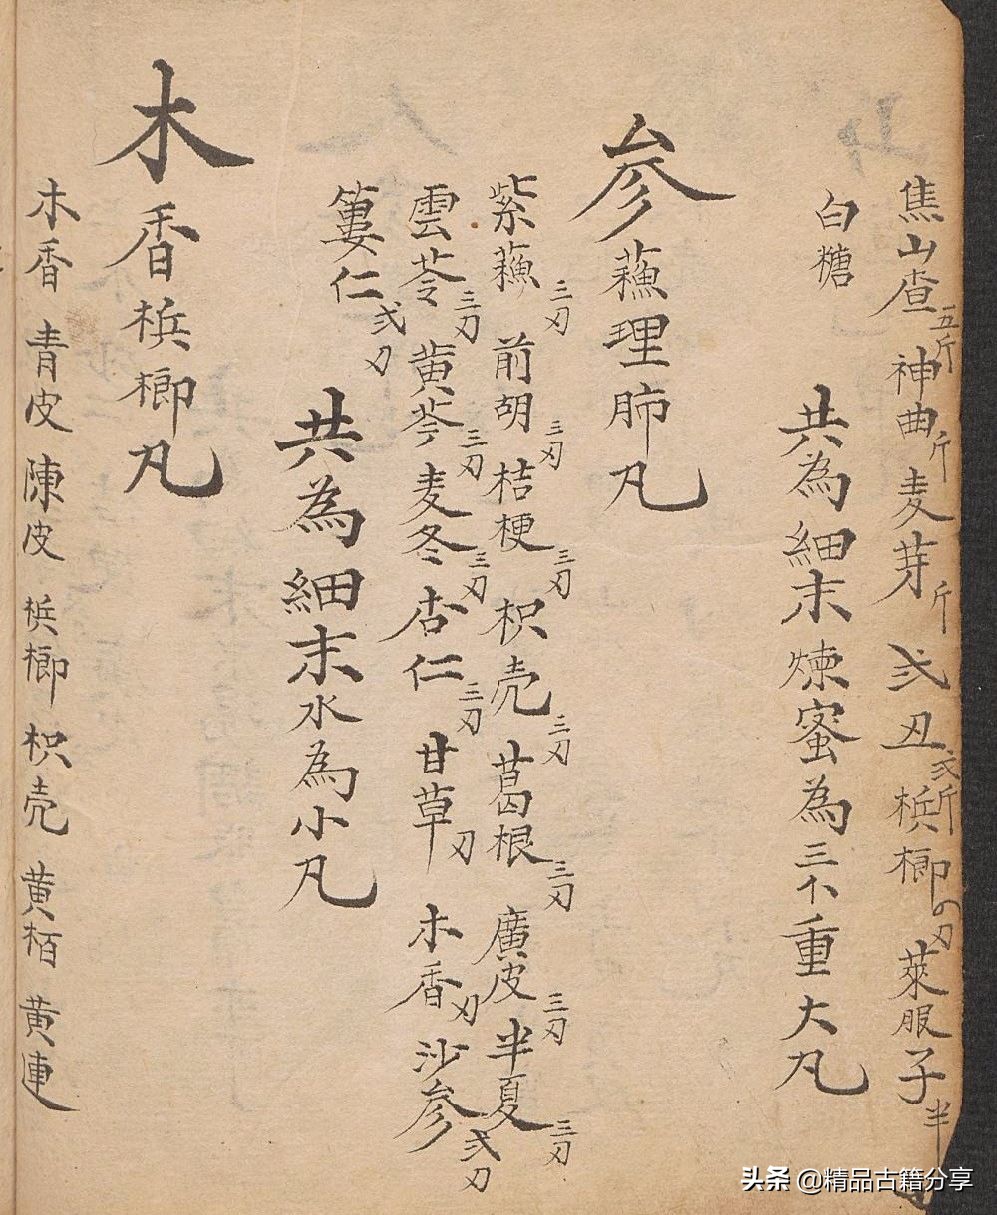 焦山查五斤 神曲斤 麦芽斤 弍丑弍斤 梹榔 萊服子半
白糖
共為細末煉蜜為三个重大凡
参蘓理肺凡
紫蘓三刃 前胡三刃 桔梗三刃 枳壳三刃 葛根三刃 廣皮三刃 半夏三刃
雲苓三刃 黄芩三刃 麦冬三刃 杏仁三刃 甘草刃 木香刃 沙参弍刃
蔞仁弍刃
共為細末水為小凡
木香梹榔凡
木香 青皮 陳皮 梹榔 枳壳 黄栢 黄連
头条 @精品古籍分享